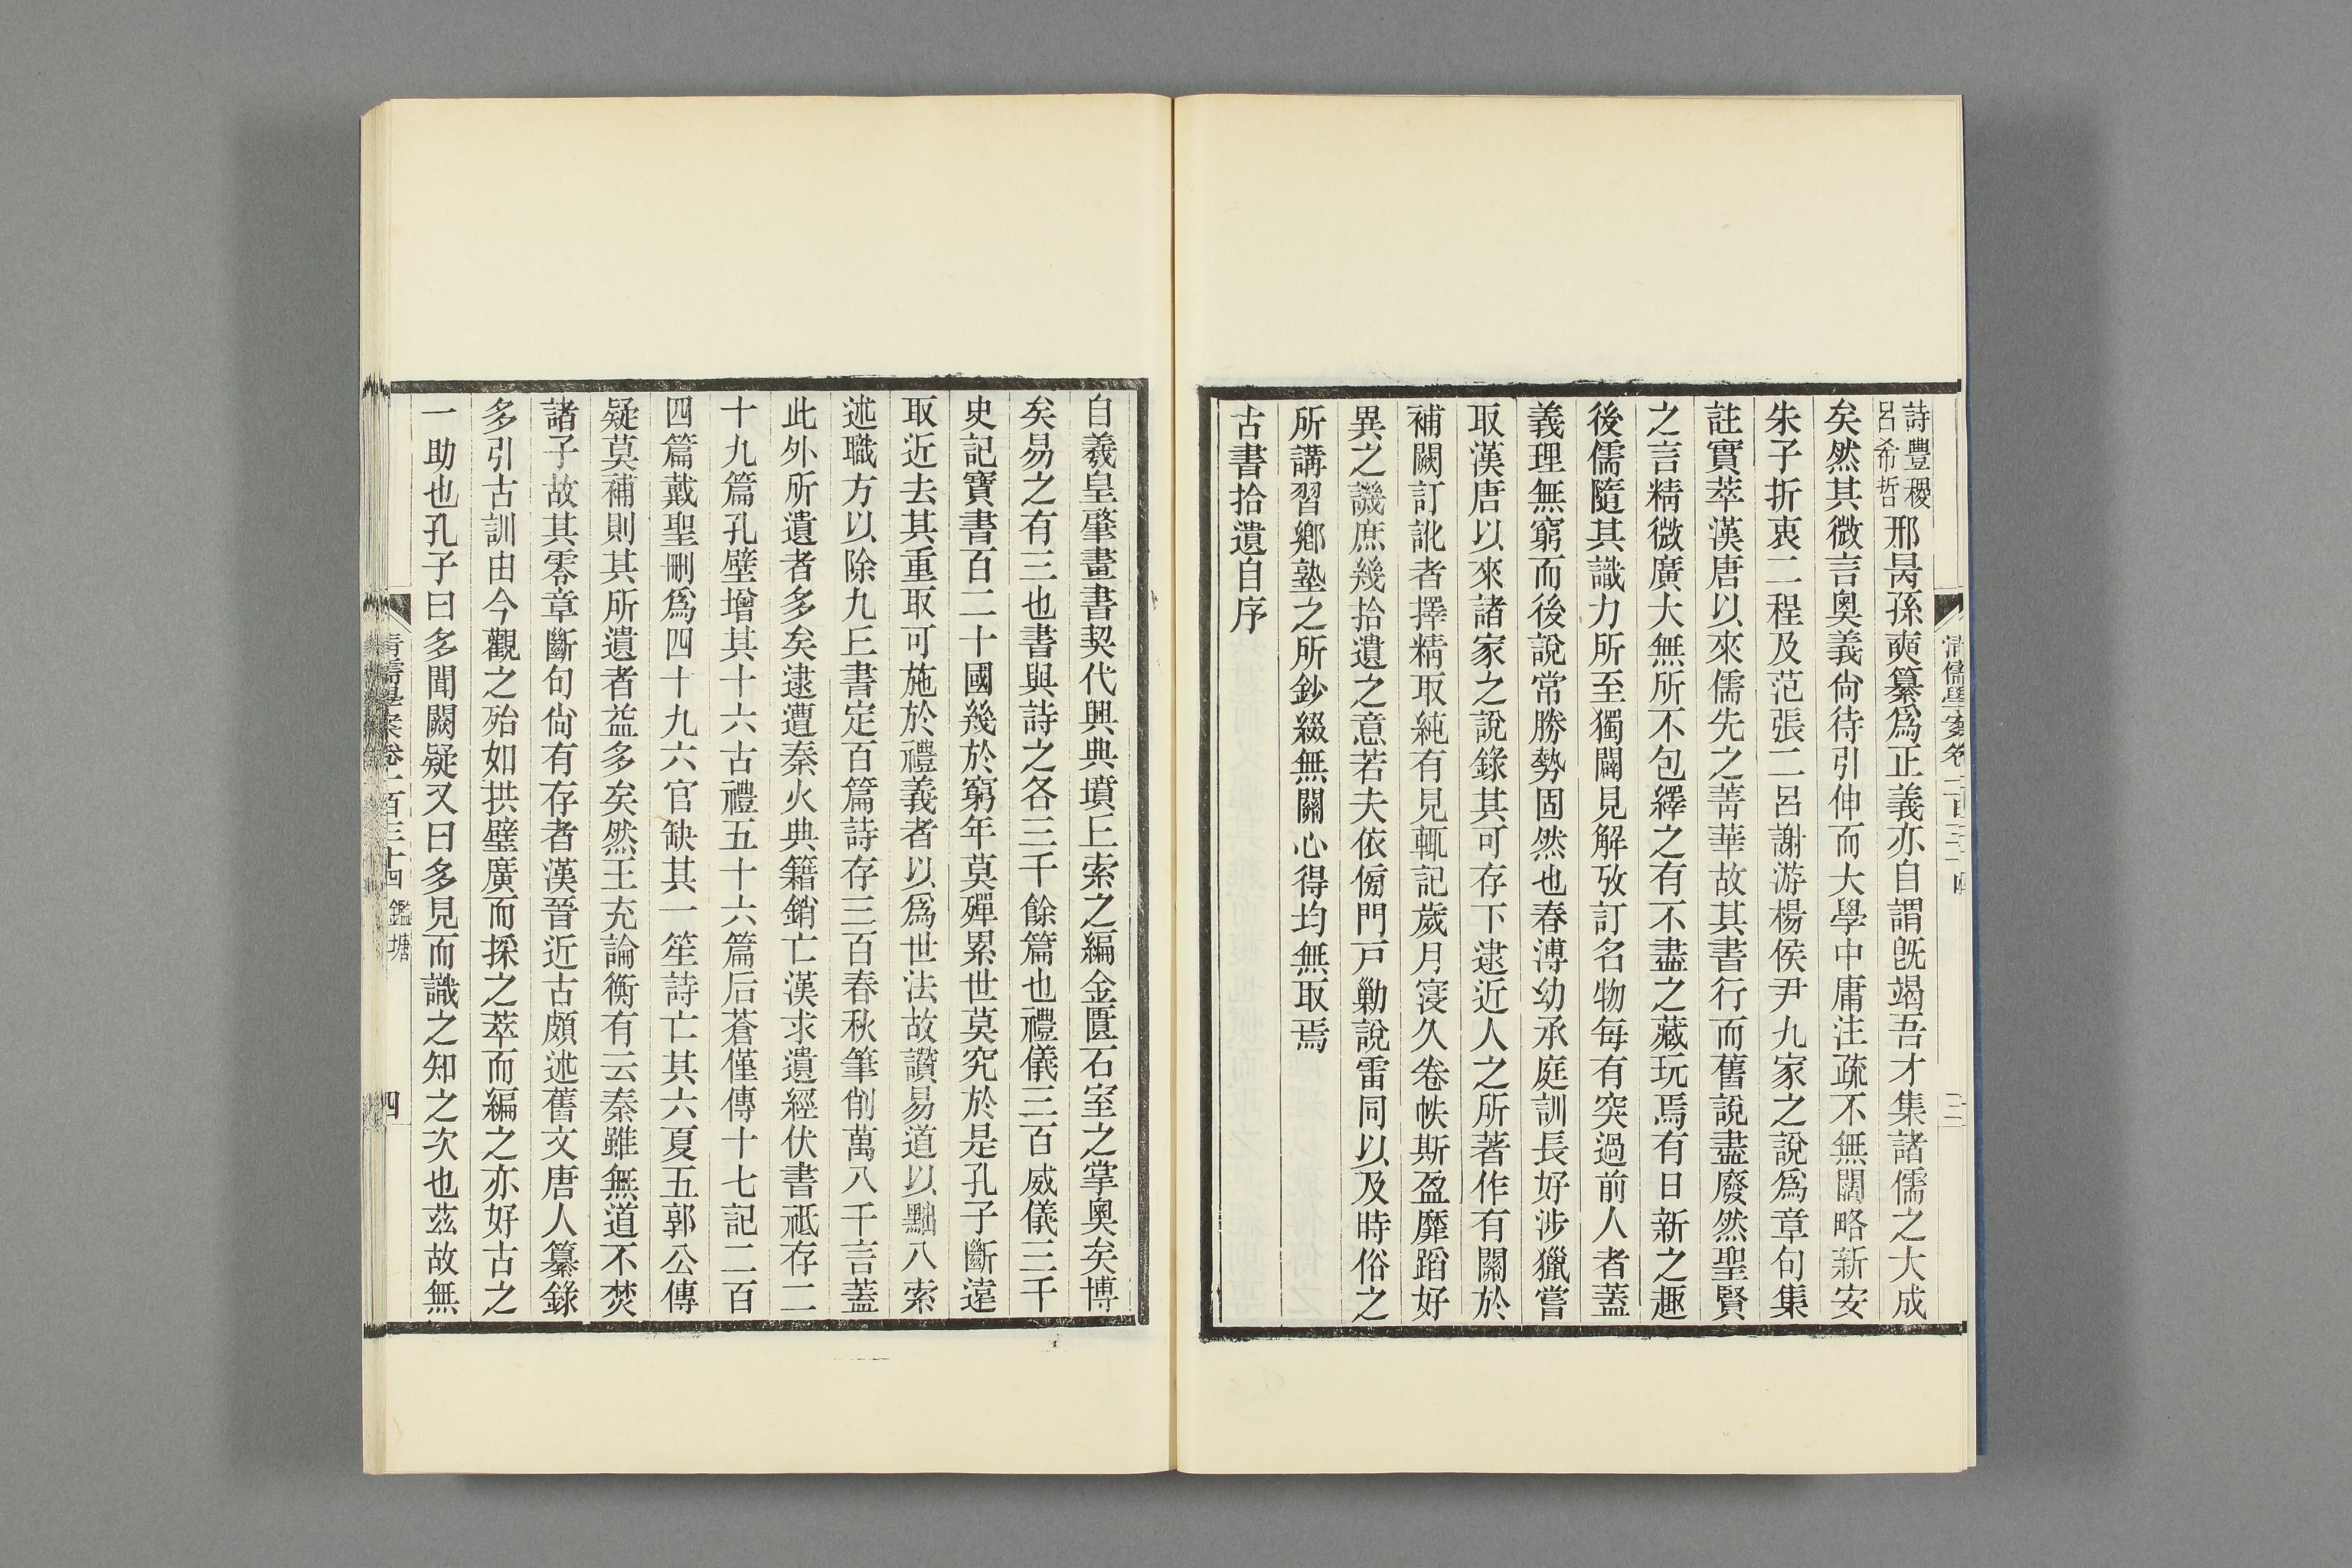 詩豐稷
呂希哲
邢昺孫奭纂爲正義亦自謂旣竭吾才集諸儒之大成
矣然其微言奧義尙待引伸而大學中庸注疏不無闊略新安
朱子折衷二程及范張二呂謝游楊侯尹九家之說爲章句集
註實萃漢唐以來儒先之菁華故其書行而舊說盡廢然聖賢
之言精微廣大無所不包繹之有不盡之藏玩焉有日新之趣
後儒隨其識力所至獨闢見解攷訂名物每有突過前人者蓋
義理無窮而後說常勝勢固然也春溥幼承庭訓長好涉獵嘗
取漢唐以來諸家之說錄其可存下逮近人之所著作有關於
補闕訂訛者擇精取純有見輒記歲月寖久卷帙斯盈靡蹈好
異之譏庶幾拾遺之意若夫依傍門戸勦說雷同以及時俗之
所講習鄉塾之所鈔綴無關心得均無取焉
古書拾遺自序
自羲皇肇畫書契代興典墳𠀉索之編金匱石室之掌奧矣博
矣易之有三也書與詩之各三千餘篇也禮儀三百威儀三千
史記寶書百二十國幾於窮年莫殫累世莫究於是孔子斷遠
取近去其重取可施於禮義者以爲世法故讚易道以黜八索
述職方以除九𠀉書定百篇詩存三百春秋筆削萬八千言蓋
此外所遺者多矣逮遭秦火典籍銷亡漢求遺經伏書祗存二
十九篇孔壁增其十六古禮五十六篇后蒼僅傳十七記二百
四篇戴聖刪爲四十九六官缺其一笙詩亡其六夏五郭公傳
疑莫補則其所遺者益多矣然王充論衡有云秦雖無道不焚
諸子故其零章斷句尙有存者漢晉近古頗述舊文唐人纂錄
多引古訓由今觀之殆如拱璧廣而採之萃而編之亦好古之
一助也孔子曰多聞闕疑又曰多見而識之知之次也茲故無
清儒學案卷一百三十四 鑑塘
四
清儒學案卷一百三十四
三